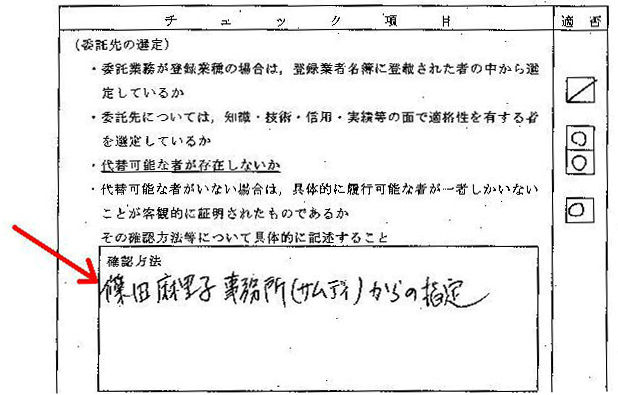 チェック項目 適否
(委託先の選定)
・委託業務が登録業種の場合は,登録業者名簿に登載された者の中から選
定しているか
・委託先については,知識・技術・信用・実績等の面で適格性を有する者
を選定しているか
・代替可能な者が存在しないか
・代替可能な者がいない場合は,具体的に履行可能な者が一者しかいない
ことが客観的に証明されたものであるか
その確認方法等について具体的に記述すること
確認方法
篠田麻里子事務所(サムデイ)からの指定